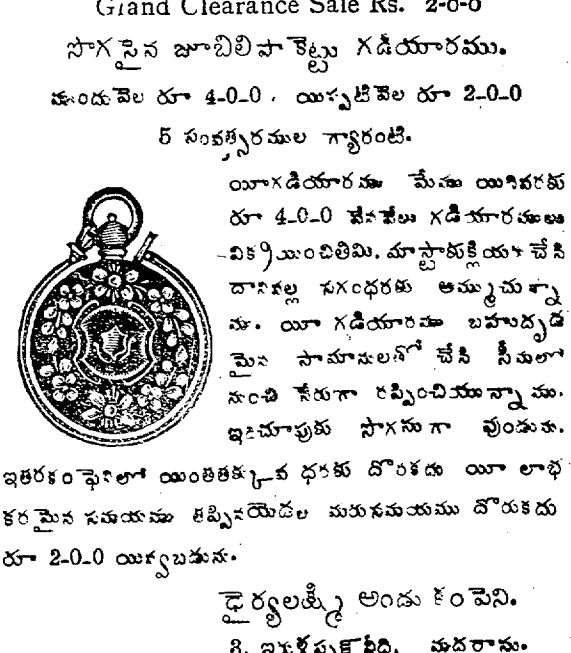 Grand Clearance Sale Rs. 2-0-0
సొగసైన జూబిలిపాకెట్టు గడియారము.
ముందువెల రూ 4-0-0. యిప్పటివెల రూ 2-0-0
5 సంవత్సరముల గ్యారంటి.
యీగడియారము మేము యిదివరకు
రూ 4-0-0 వేనవేలు గడియారములు
విక్రయించితిమి. మాస్టాకుక్లియరు చేసి
దానివల్ల సగంధరకు అమ్ముచున్నా
ము. యీ గడియారము బహుదృడ
మైన సామానులతో చేసి సీమలో
నుంచి నేరుగా రప్పించియున్నాము.
ఇదిచూపుకు సొగసుగా వుండును.
ఇతరకంపెనిలో యింతతక్కువ ధరకు దొరకదు యీ లాభ
కరమైన సమయము తప్పినయెడల మరుసమయము దొరుకదు
రూ 2-0-0 యివ్వబడును.
ధైర్యలక్ష్మి అండు కంపెని.
వీధి, మదరాసు.